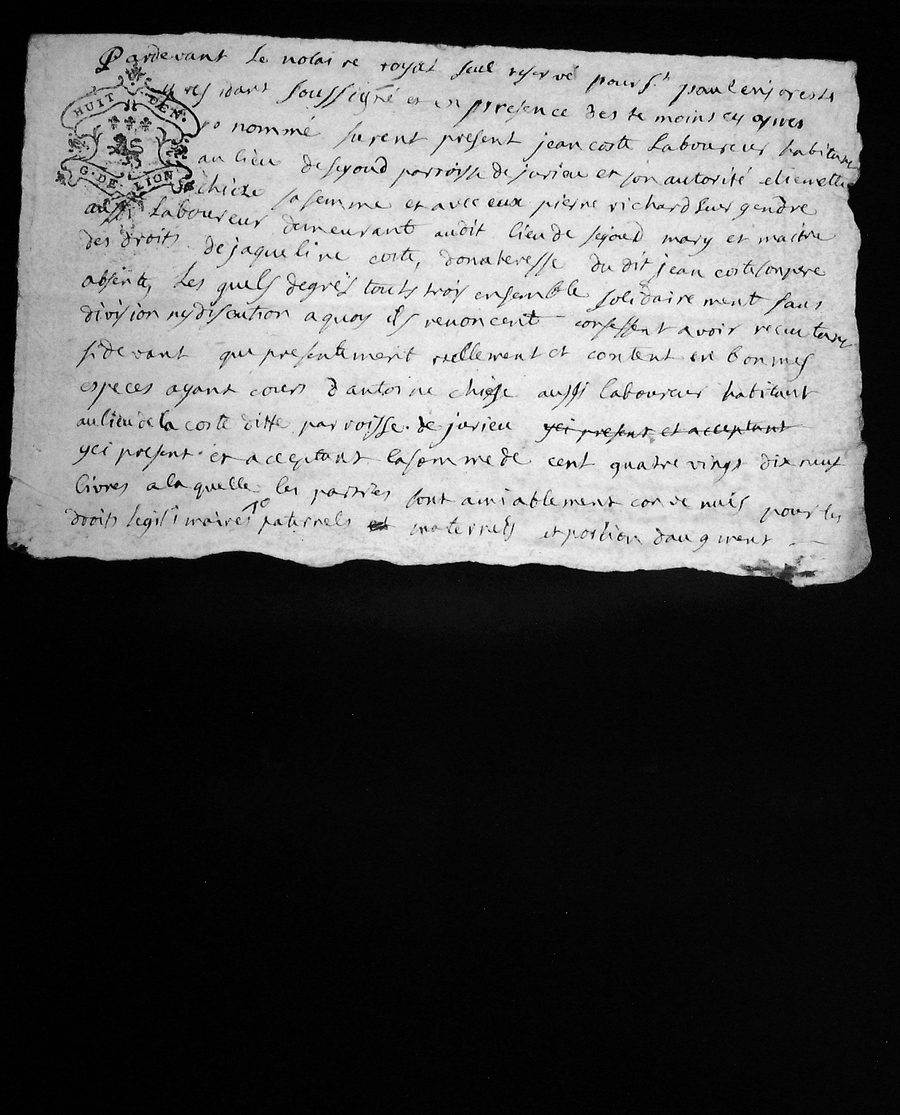 HUIT DEN.
G. DE LION
Pardevant Le notaire royal seul reservé pour st paul enjorests
y residant soussigné et en presence des temoins cy apres
nommé furent present jean coste Laboureur habitant
au lieu de sejoud parroisse de jurieu et son autorité etiennette
chieze sa femme et avec eux pierre richard sur gendre
aussi Laboureur demeurant audit lieu de sejoud mary et maitre
des droits de jaqueline coste, donateresse du dit jean coste son pere
absente, Les quels degrés touts trois ensemble solidairement sans
division ny discution a quoy ils renoncent confessent avoir receu tant
sidevant que presentement reellement et content en bonnes
especes ayant cours d'antoine chieze aussi laboureur habitant
au lieu de la coste ditte parroisse de jurieu yci present et acceptant
yci present et acceptant la somme de cent quatre vingt dix neuf
livres a la quelle les parties sont amiablement convenuës pour les
droits legitimaires paternels et maternels et portion daugment